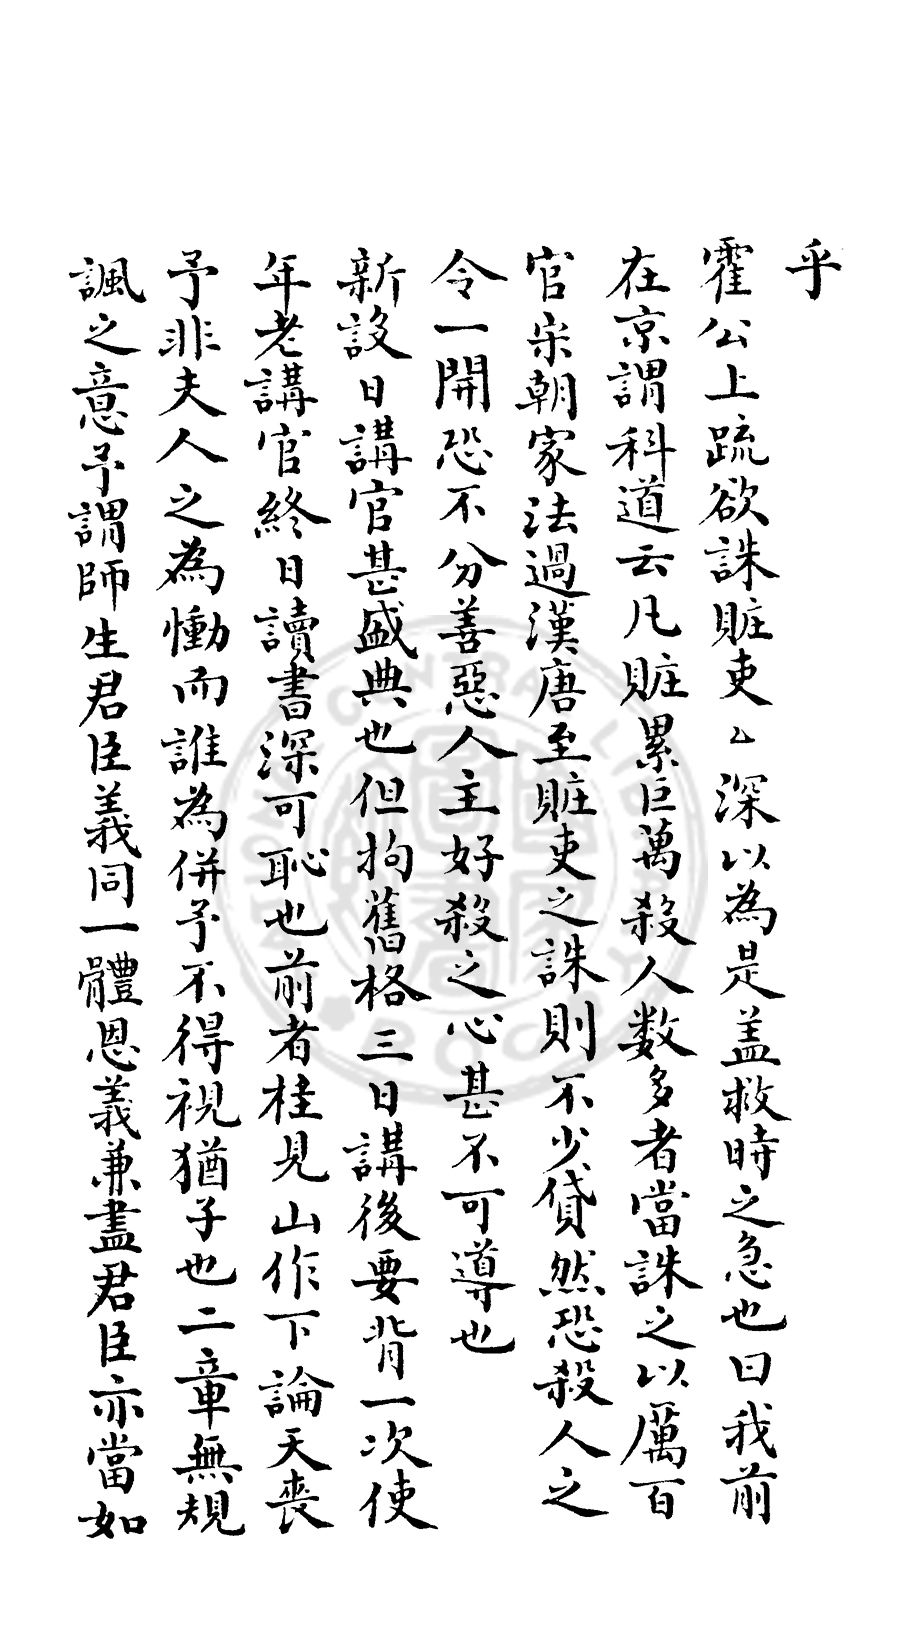 乎
霍公上疏欲誅賍吏〻深以為是盖救時之急也曰我前
在京謂科道云凡賍累巨萬殺人数多者當誅之以厲百
官宋朝家法過漢唐至賍吏之誅則不少貸然恐殺人之
令一開恐不分善惡人主好殺之心甚不可導也
新設日講官甚盛典也但拘舊格三日講後要背一次使
年老講官終日讀書深可恥也前者桂見山作下論天喪
予非夫人之為慟而誰為併予不得視猶子也二章無規
諷之意予謂師生君臣義同一體恩義兼盡君臣亦當如